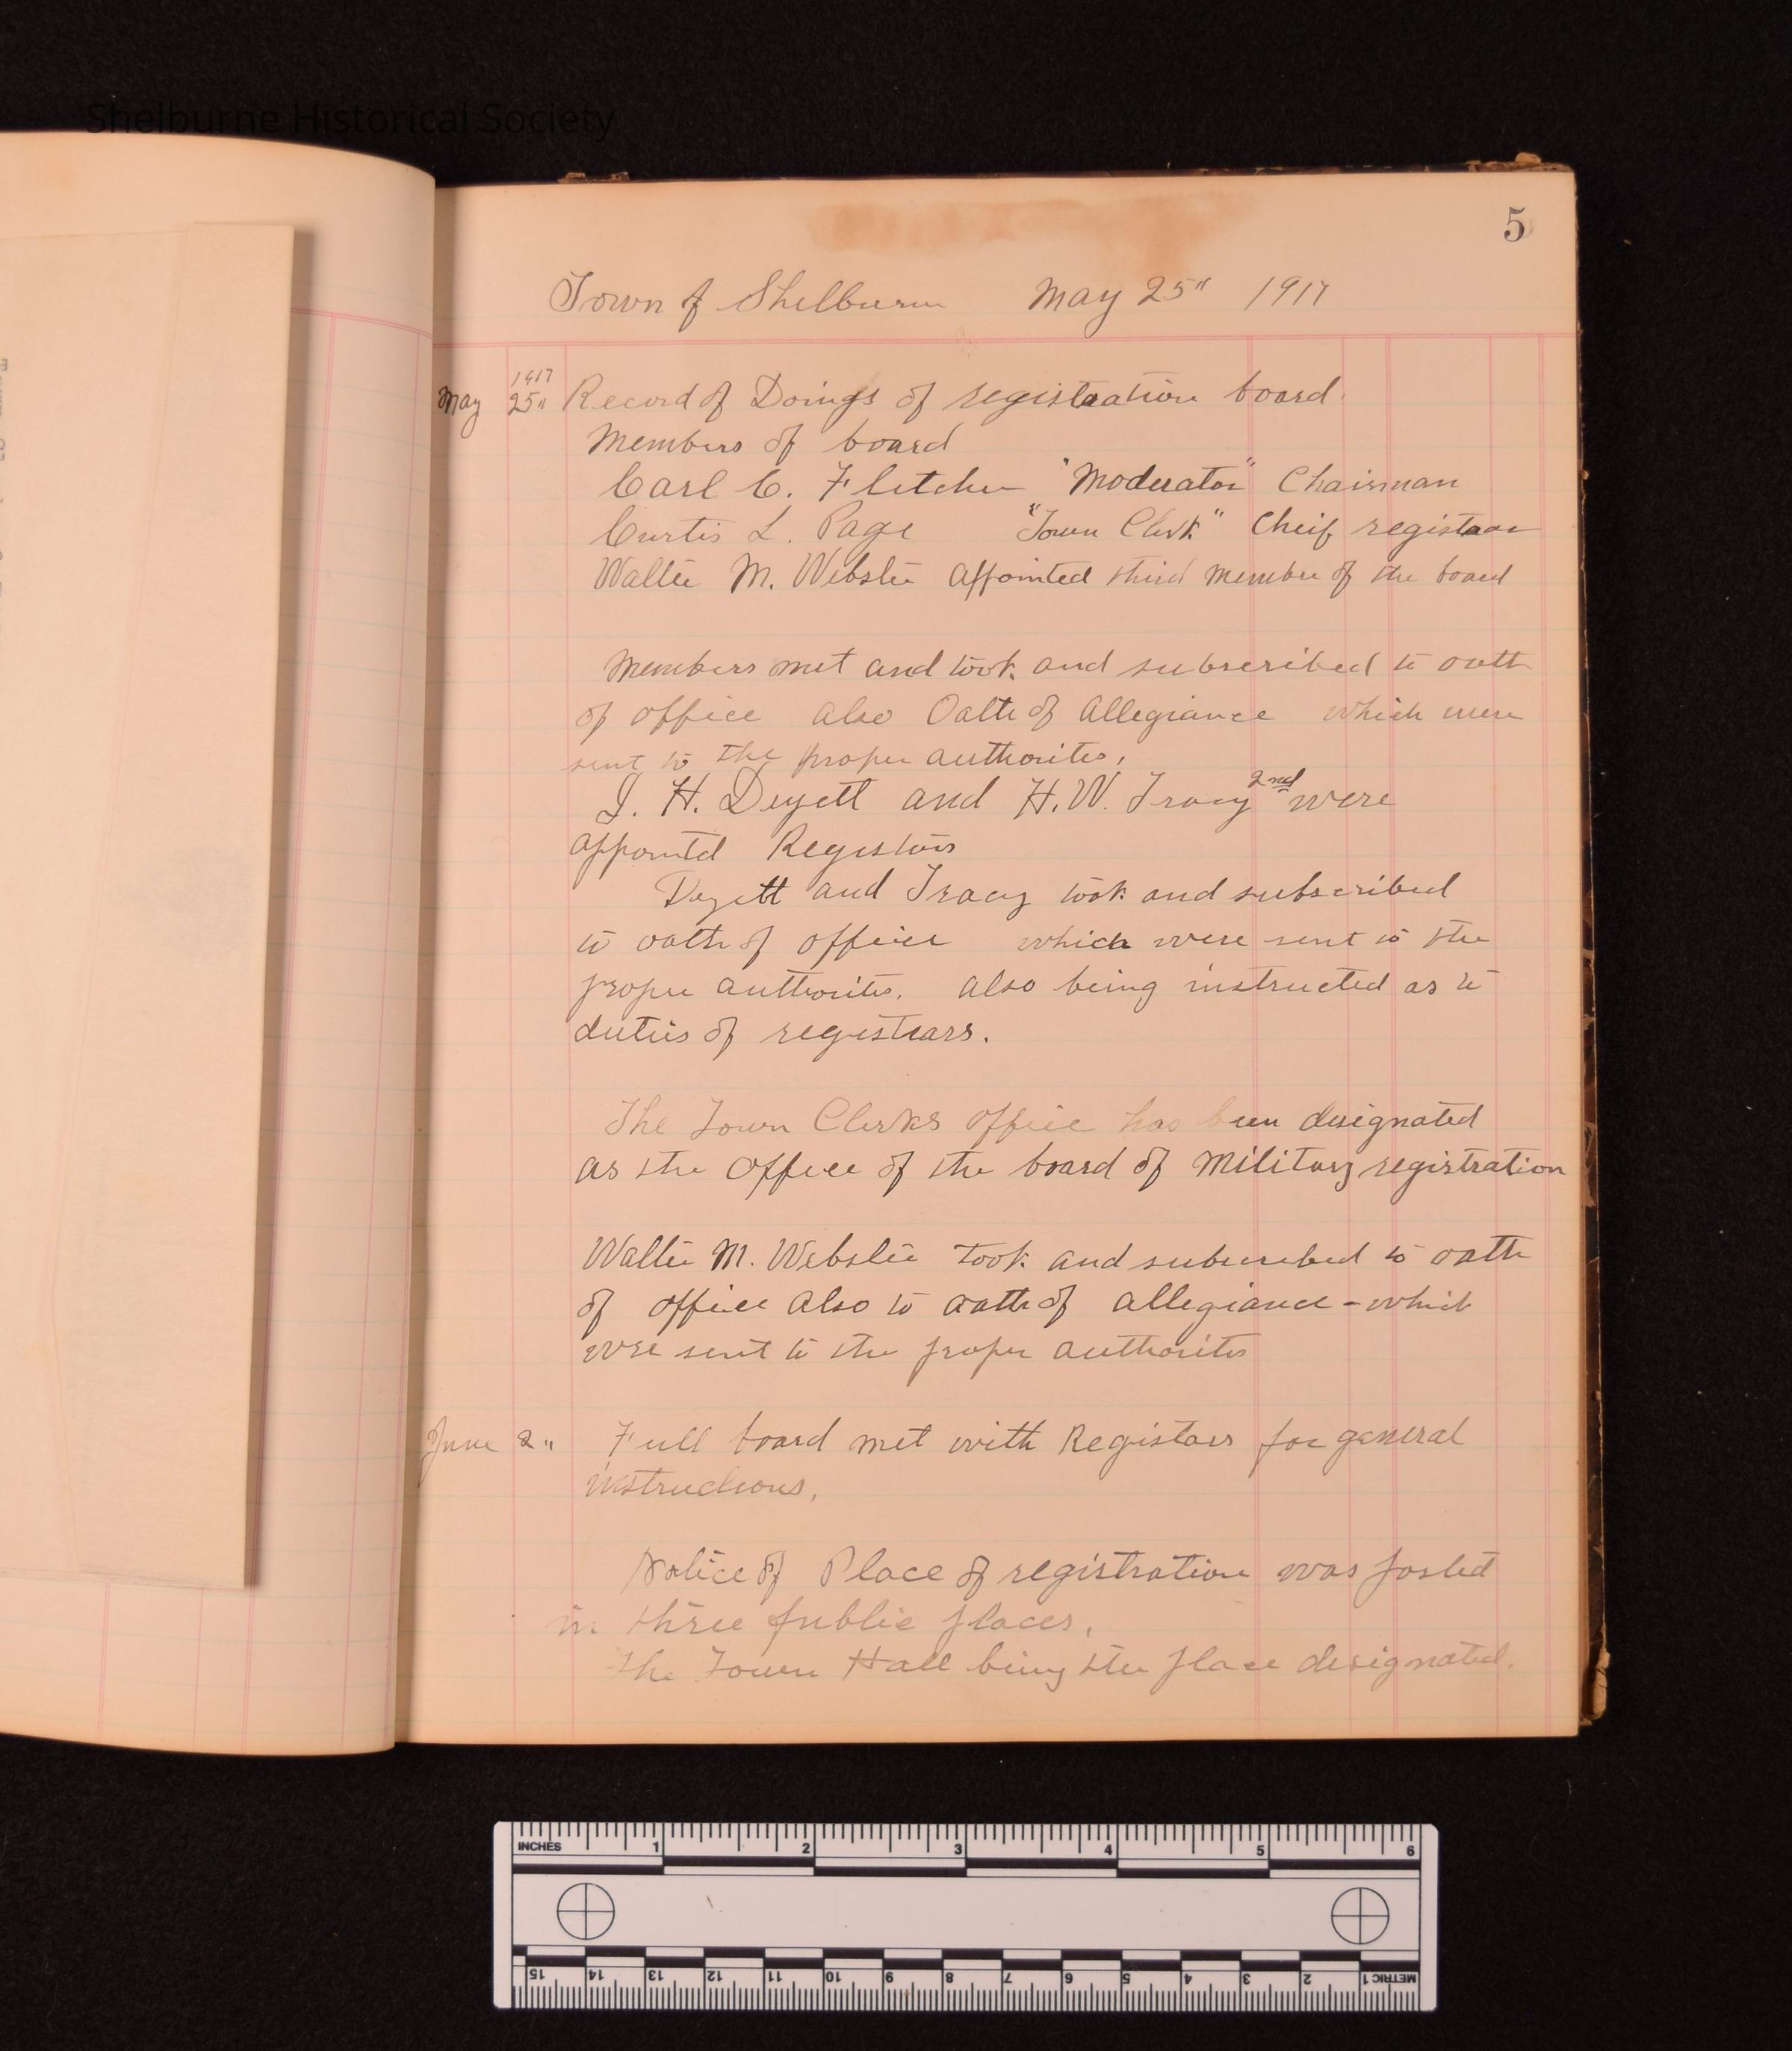 Shelburne Historical Society
5
Town of Shelburne May 25" 1917
1917
May 25" Record of Doings of registration board.
Members of board
Carl C. Fletcher "Moderator" Chairman
Curtis L. Page "Town Clerk" Cheif registrar
Walter M. Webster appointed third member of the board
Members met and took and subscribed to oath
of office also Oath of Allegiance which were
sent to the proper authorites,
J. H. Deyett and H. W. Tracy 2nd were
appointd Registors
Deyett and Tracy took and subscribed
to oath of office which were sent to the
proper authorites. also being instructed as to
duties of registrars.
The Town Clerks office has been designated
as the office of the board of Military registration
Walter M. Webster took and subscribed to oath
of office also to oath of allegiance - which
were sent to the proper authorites
June 2" Full board met with Registars for general
instructions,
Notice of Place of registration was posted
in three public places,
The Town Hall being the place designated.
INCHES 1 2 3 4 5 6
15 14 13 12 11 10 9 8 7 6 5 4 3 2 1 METRIC